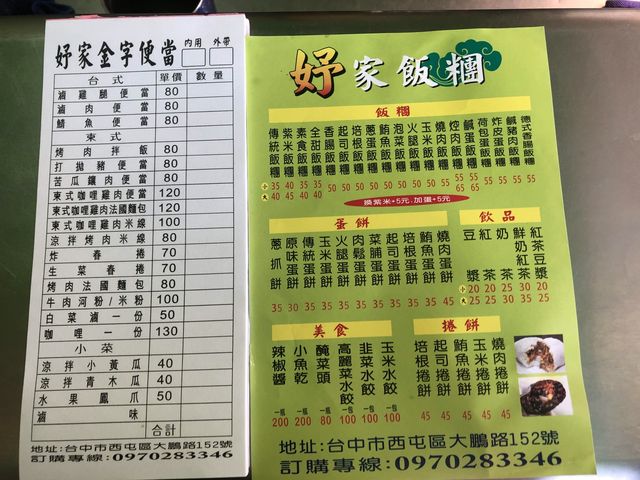 妤家金字便當 內用 外帶
台式 單價 數量
滷雞腿便當 80
滷肉便當 80
鯖魚便當 80
柬式
烤肉拌飯 80
打拋豬便當 80
苦瓜鑲肉便當 80
柬式咖哩雞肉便當 120
柬式咖哩雞肉法國麵包 120
柬式咖哩雞肉米線 100
涼拌烤肉米線 80
炸春捲 70
生菜春捲 70
烤肉法國麵包 80
牛肉河粉/米粉 100
白菜滷一份 50
咖哩一份 130
小菜
涼拌小黃瓜 40
涼拌青木瓜 40
水果鳳爪 50
滷味
合計
地址:台中市西屯區大鵬路152號
訂購專線:0970283346
妤家飯糰
飯糰
傳統飯糰 小35 大40
紫米飯糰 40 45
素食飯糰 35 40
全甜飯糰 35 40
香腸飯糰 50
起司飯糰 50
培根飯糰 50
蔥蛋飯糰 50
鮪魚飯糰 50
泡菜飯糰 50
火腿飯糰 50
玉米飯糰 50
燒肉飯糰 50
焢肉飯糰 55 65
鹹蛋飯糰 55 65
荷包蛋飯糰 55
炸皮蛋飯糰 55
鹹豬肉飯糰 55
德式香腸飯糰 55
換紫米+5元.加蛋+5元
蛋餅
蔥抓餅 35
原味蛋餅 30
傳統蛋餅 35
玉米蛋餅 35
火腿蛋餅 35
肉鬆蛋餅 35
菜脯蛋餅 35
起司蛋餅 35
培根蛋餅 35
鮪魚蛋餅 35
燒肉蛋餅 45
飲品
豆漿 小20 大25
紅茶 20 25
奶茶 25 30
鮮奶紅茶 30 35
紅茶豆漿 20 25
美食
辣椒醬 一瓶200
小魚乾 一瓶200
醃菜頭 一瓶80
高麗菜水餃 一包100
韭菜水餃 一包100
玉米水餃 一包100
捲餅
培根捲餅 45
起司捲餅 45
鮪魚捲餅 45
玉米捲餅 45
燒肉捲餅 45
地址:台中市西屯區大鵬路152號
訂購專線:0970283346